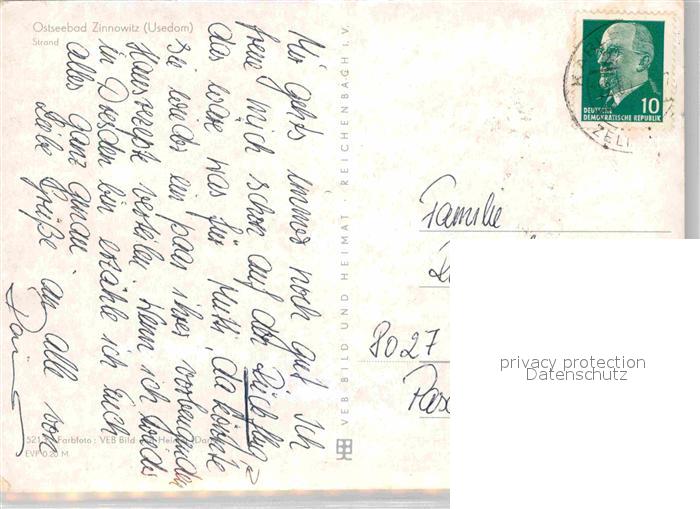 Ostseebad Zinnowitz (Usedom)
Strand
Mir geht's immer noch gut. Ich
freue mich schon auf den Rückflug,
das wäre was für Mutti, da könnte
Sie wieder ein paar ihrer vorbeugenden
Hausrezepte verteilen. Wenn ich wieder
in Dresden bin erzähle ich Euch
alles ganz genau.
Liebe Grüße an alle von
VEB BILD UND HEIMAT · REICHENBACH i. V.
521 Farbfoto: VEB Bild Heimat (Dar
EVP 0.20 M
DEUTSCHE
DEMOKRATISCHE REPUBLIK
10
ZELL
Familie
8027
privacy protection
Datenschutz